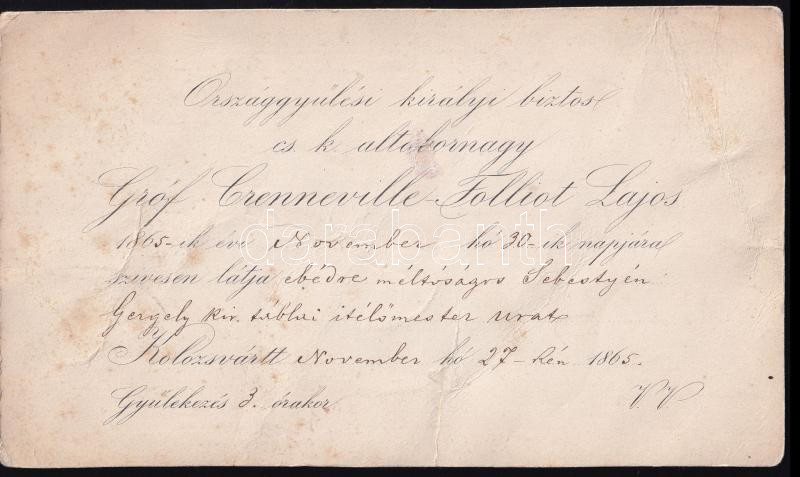 Országgyülési királyi biztos
cs. k. altabornagy
Gróf Crenneville-Folliot Lajos
1865-ik évi November hó 30-ik napjára
szivesen látja ebédre méltóságos Sebestyén
Gergely kir. táblai itélőmester urat
Kolozsvártt November hó 27-kén 1865.
Gyülekezés 3. órakor
darabanth.com